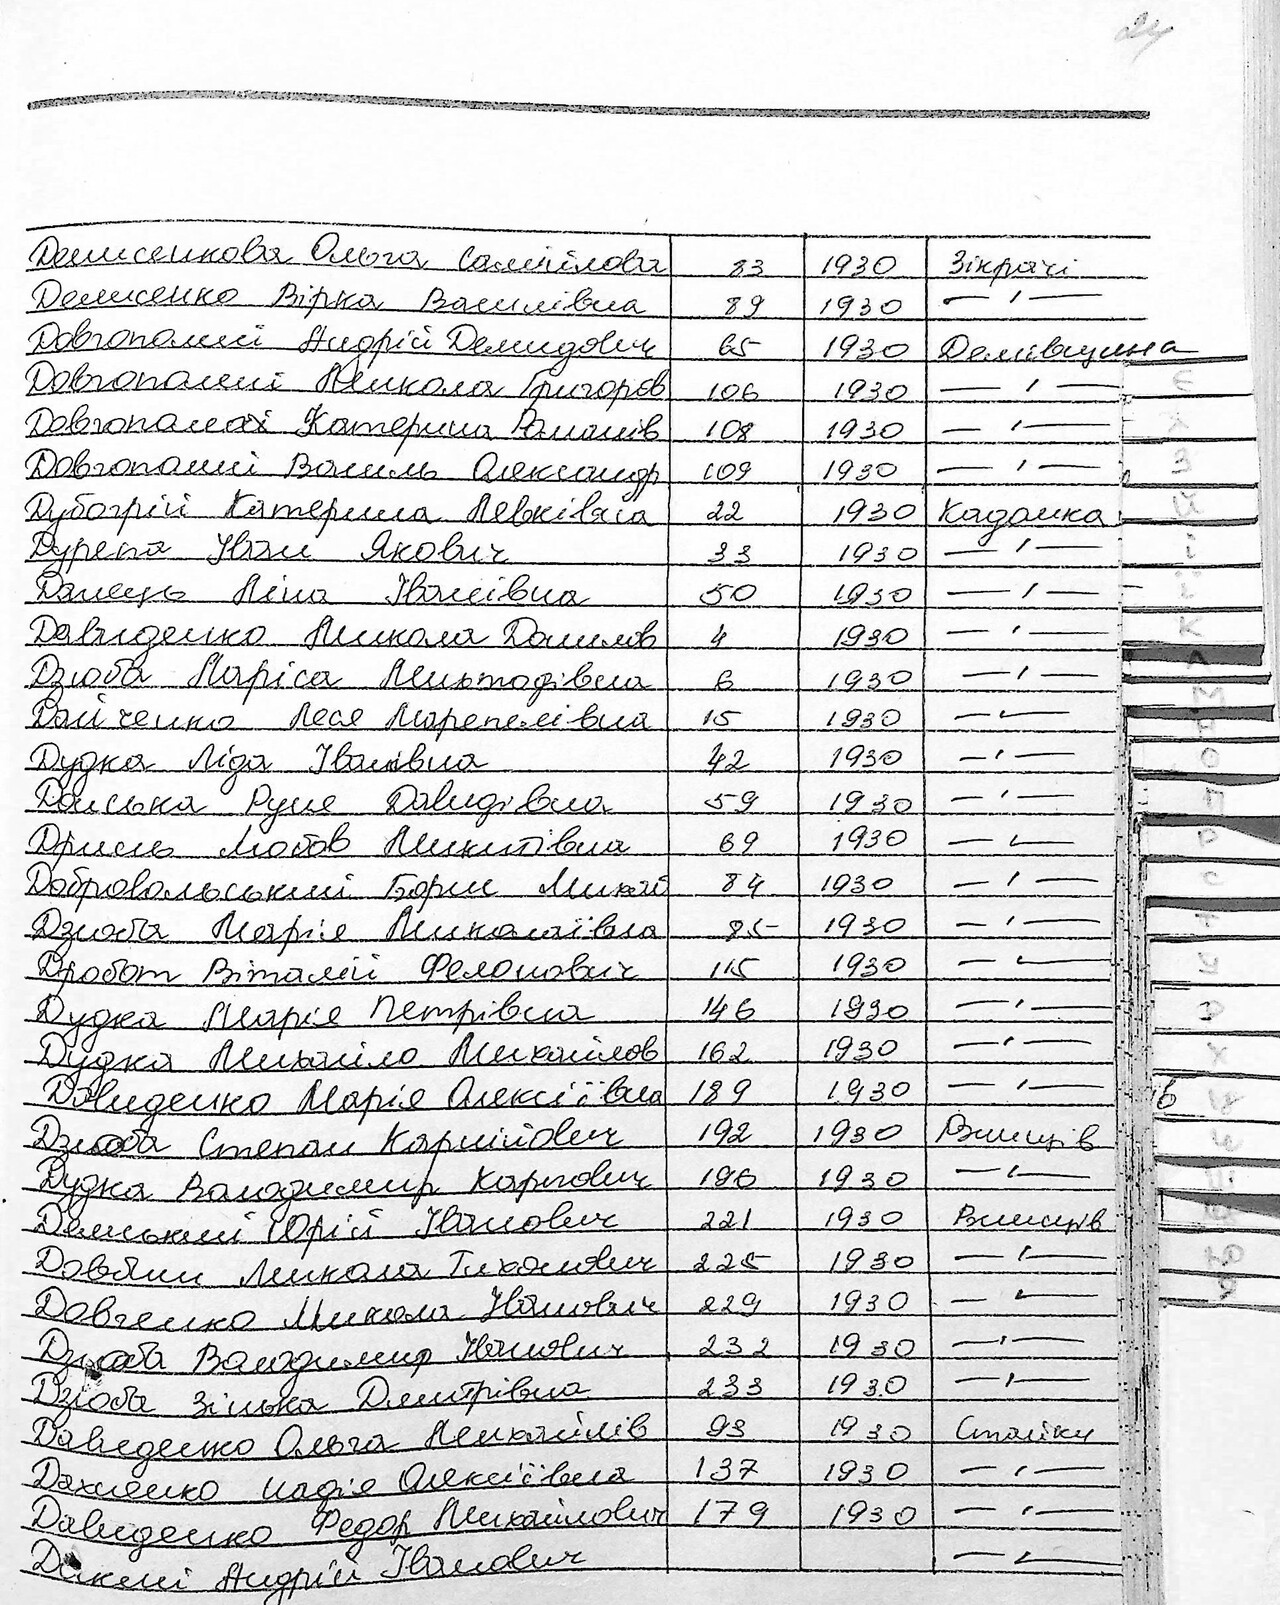 24
Денисенкова Ольга Самійлова 83 1930 Зікрачі
Денисенко Вірка Василівна 89 1930 — " —
Довгополий Андрій Демидович 65 1930 Демівщина
Довгополий Микола Григоров 106 1930 — " —
Довгополий Катерина Романів 108 1930 — " —
Довгополий Василь Олександр 109 1930 — " —
Дубогрій Катерина Левківна 22 1930 Кадомка
Дурепа Іван Якович 33 1930 — " —
Данець Ніна Іванівна 50 1930 — " —
Давиденко Микола Данилов 4 1930 — " —
Дзюба Маріса Миктодівна 6 1930 — " —
Дайченко Леся 15 1930 — " —
Дудка Ліда Іванівна 42 1930 — " —
Донська Руня Давидівна 59 1930 — " —
Дрись Любов Микитівна 69 1930 — " —
Добровольський Борис Микол 84 1930 — " —
Дзюба Марія Миколаївна 85 1930 — " —
Дробот Віталій Фелонович 115 1930 — " —
Дудка Марія Петрівна 146 1930 — " —
Дудка Михайло Михайлов 162 1930 — " —
Давиденко Марія Олексіївна 189 1930 — " —
Дзюба Степан Карпович 192 1930 Ржищів
Дудка Володимир Карпович 196 1930 — " —
Демський Юрій Іванович 221 1930 Ржищів
Довбиш Микола Тихонович 225 1930 — " —
Довченко Микола Іванович 229 1930 — " —
Дзюба Володимир Іванович 232 1930 — " —
Дзюба Зінька Дмитрівна 233 1930 — " —
Давиденко Ольга Михайлів 93 1930 Стайки
Дахненко Надія Олексіївна 137 1930 — " —
Давиденко Федор Михайлович 179 1930 — " —
Дикий Андрій Іванович — " —